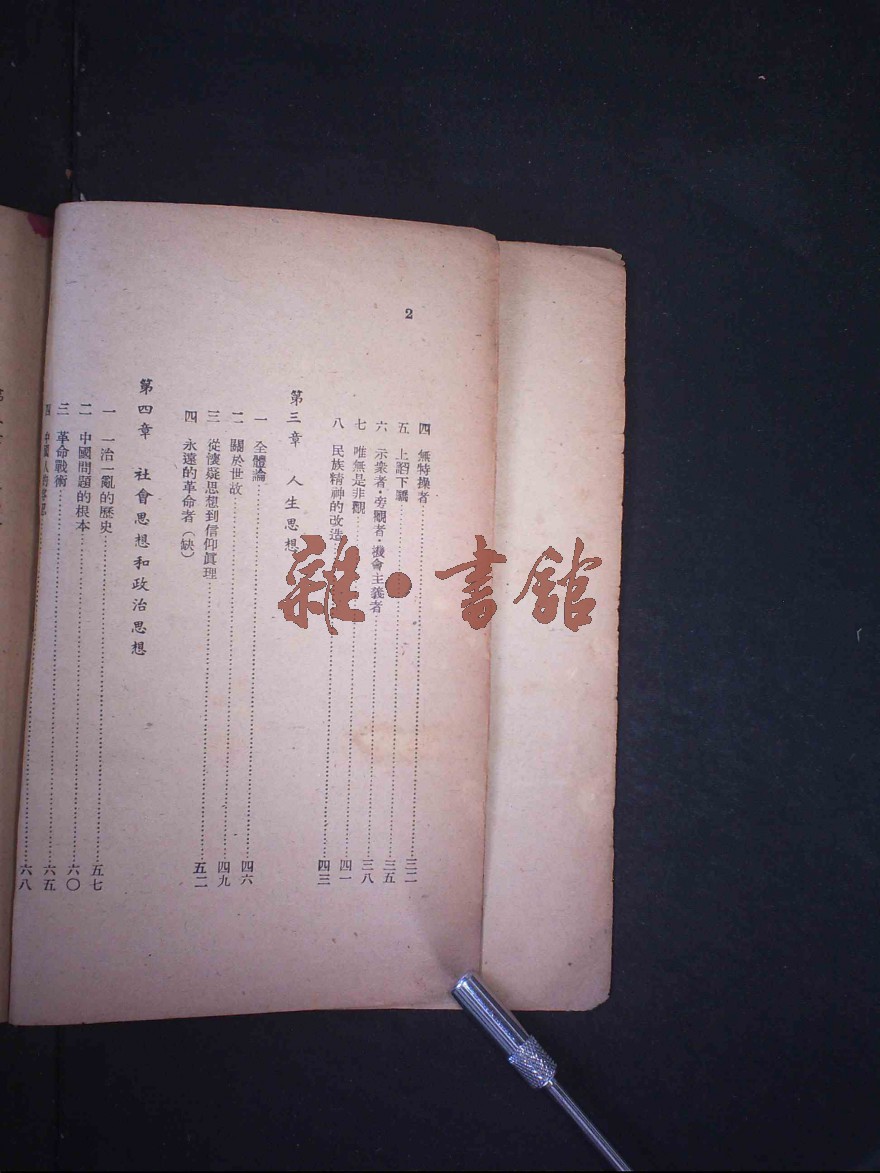 2
四 無特操者……三二
五 上諂下驕……三五
六 示衆者·旁觀者·機會主義者……三八
七 唯無是非觀……四一
八 民族精神的改造……四三
第三章 人生思想
一 全體論……四六
二 關於世故……四九
三 從懷疑思想到信仰眞理……五二
四 永遠的革命者(缺)
第四章 社會思想和政治思想
一 一治一亂的歷史……五七
二 中國問題的根本……六〇
三 革命戰術……六五
四 中國人的……六八
雜·書館